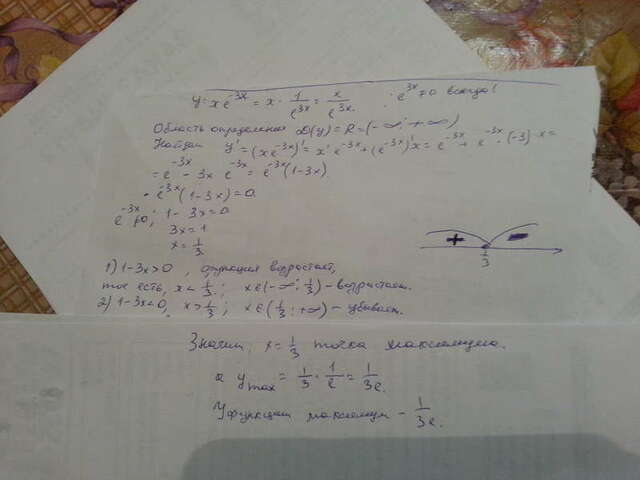 y = x e^{-3x} = x · 1/e^{3x} = x/e^{3x}. e^{3x} ≠ 0 всегда!
Область определения D(y) = R = (-∞; +∞)
Найдем y' = (x e^{-3x})' = x' e^{-3x} + (e^{-3x})' x = e^{-3x} + e^{-3x} · (-3) x =
= e^{-3x} - 3x e^{-3x} = e^{-3x} (1-3x)
e^{-3x} (1-3x) = 0
e^{-3x} ≠ 0; 1-3x = 0
3x = 1
x = 1/3
+ -
1/3
1) 1-3x > 0, функция возрастает,
то есть, x < 1/3; x ∈ (-∞; 1/3) - возрастает.
2) 1-3x < 0, x > 1/3; x ∈ (1/3; +∞) - убывает.
Значит, x = 1/3 точка максимума.
а y max = 1/3 · 1/e = 1/3e.
У функции максимум - 1/3e.